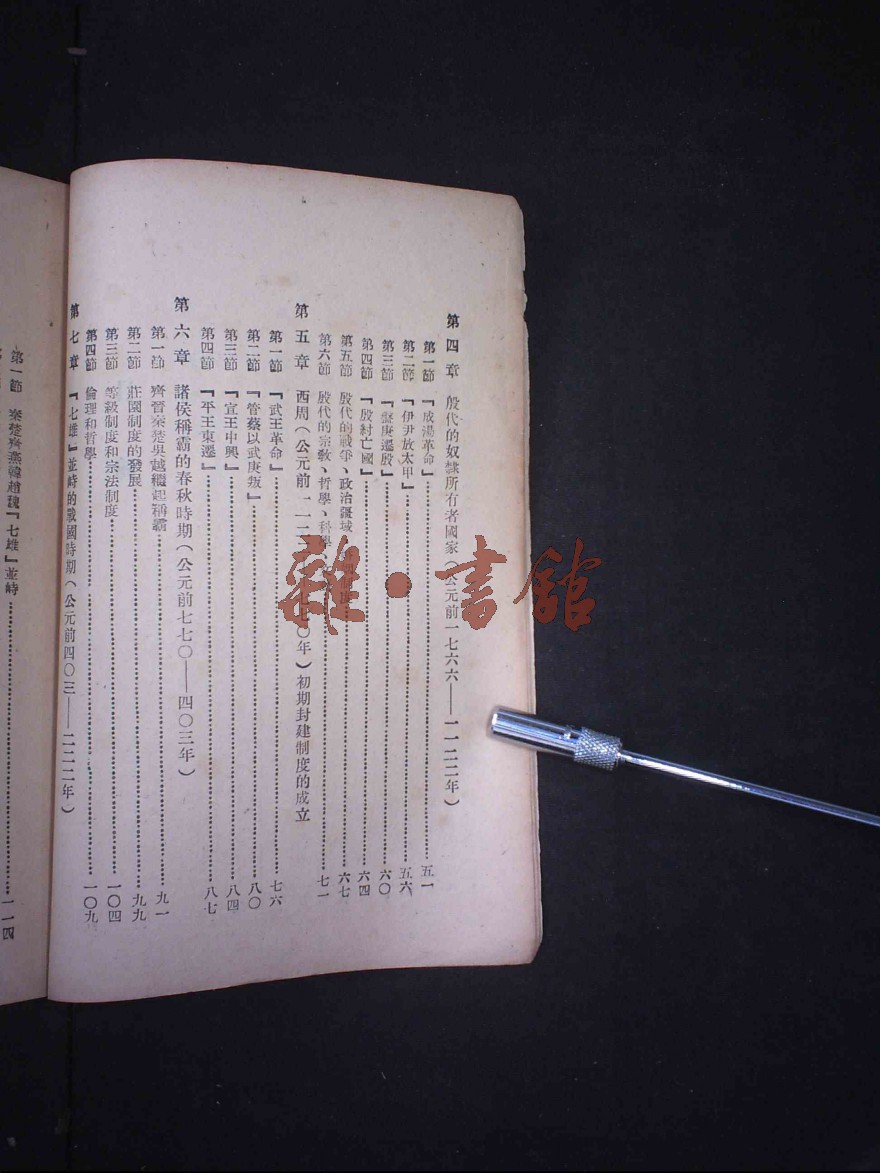 第四章 殷代的奴隸所有者國家(公元前一七六六——一一二二年)
第一節 『成湯革命』……五一
第二節 『伊尹放太甲』……五六
第三節 『盤庚遷殷』……六〇
第四節 『殷紂亡國』……六四
第五節 殷代的戰爭、政治疆域……六七
第六節 殷代的宗教、哲學、科學、……七一
第五章 西周(公元前一一二二——七七〇年)初期封建制度的成立
第一節 『武王革命』……七六
第二節 『管蔡以武庚叛』……八〇
第三節 『宣王中興』……八四
第四節 『平王東遷』……八七
第六章 諸侯稱霸的春秋時期(公元前七七〇——四〇三年)
第一節 齊晉秦楚吳越繼起稱霸……九一
第二節 莊園制度的發展……九九
第三節 等級制度和宗法制度……一〇四
第四節 倫理和哲學……一〇九
第七章 『七雄』並峙的戰國時期(公元前四〇三——二二二年)
第一節 秦楚齊燕韓趙魏『七雄』並峙……一一四
雜·書館